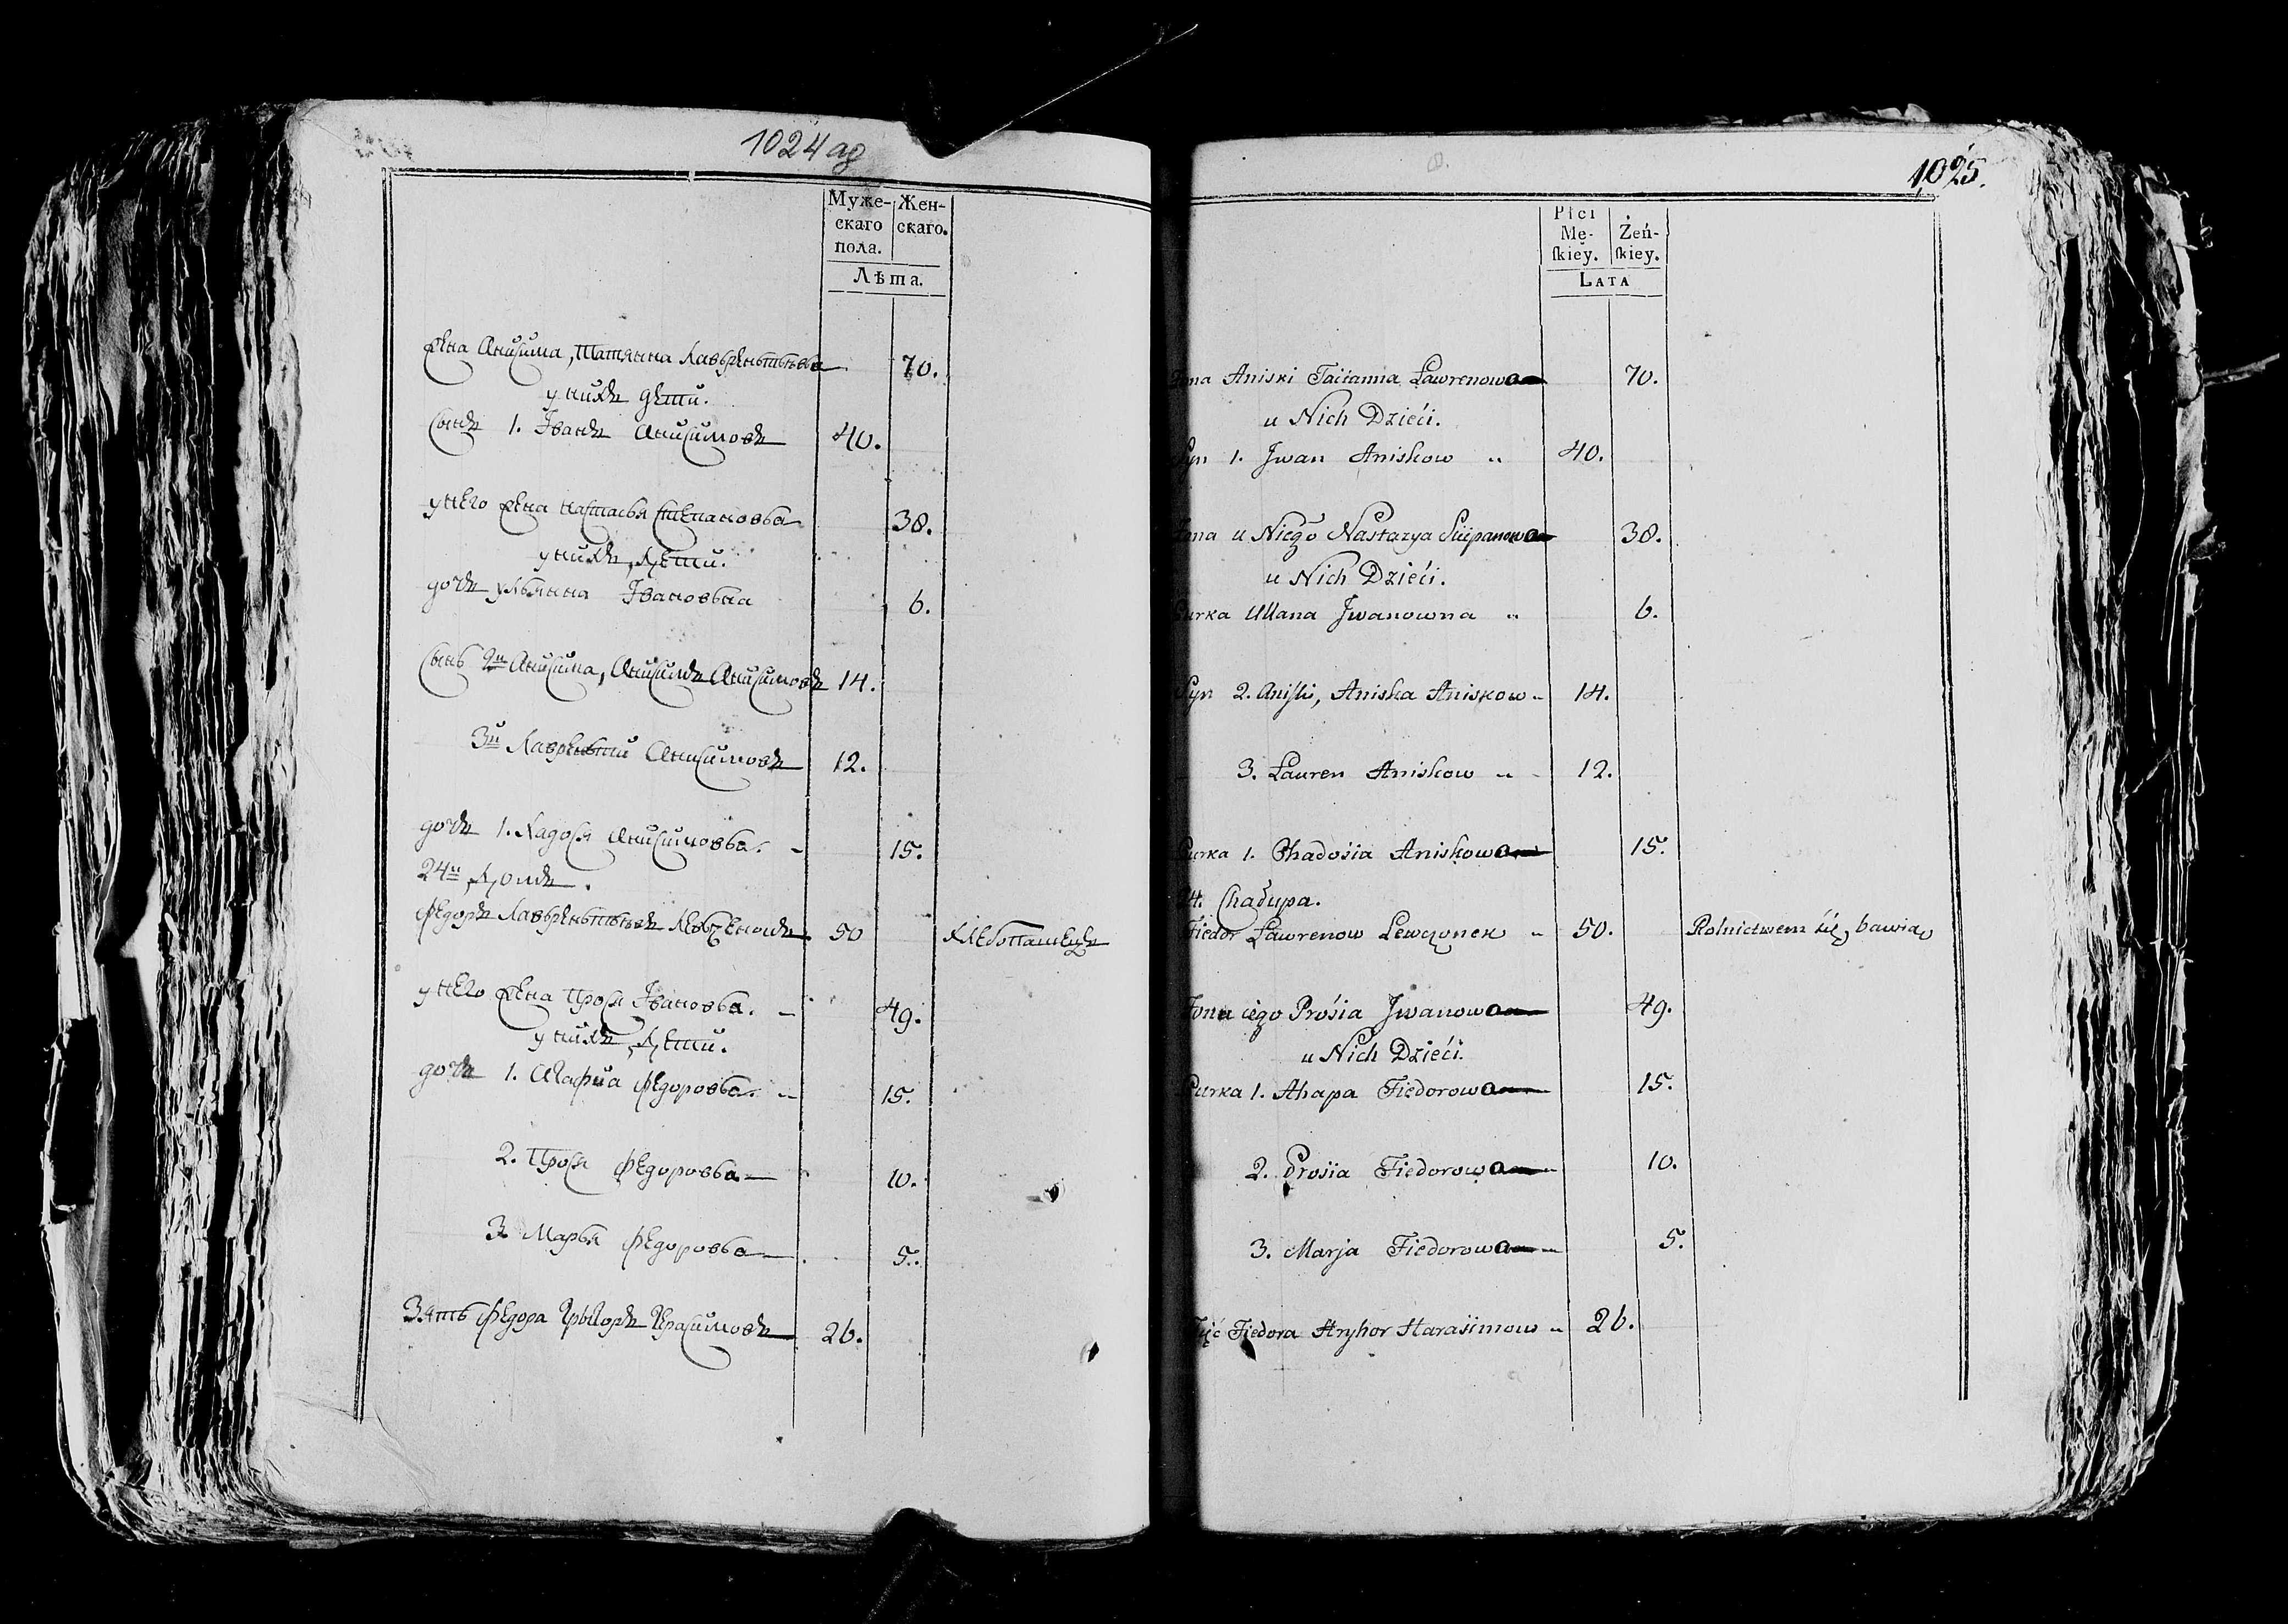 1024 аg
Муже- Жен-
скаго скаго.
пола.
Лѣта.
Жена Анисима, Татянна Лаврентьева 70.
у нихъ дети.
Сынъ 1. Иванъ Анисимовъ 40.
у него жена Настасья Степановва 38.
у нихъ дети.
дочъ Ульянна Ивановвна 6.
Сынъ 2й Анисима, Анисимъ Анисимовъ 14.
3й Лаврентий Анисимовъ 12.
дочъ 1. Хадося Анисимовва. 15.
24й домъ.
Федоръ Лаврентьевъ Левченокъ 50 хлебопашецъ
у него жена Прося Ивановва. 49.
у нихъ дети.
дочъ 1. Агафиа Федоровва. 15.
2. Прося Федоровва 10.
3. Марья Федоровва 5.
Зять Федора Грыгоръ Герасимовъ 26.
1025.
Płci
Mę- Żeń-
skiey. skiey.
LATA
Żona Aniski Tacianna Ławrenowa 70.
u Nich Dzieći.
Syn 1. Jwan Aniskow 40.
Żona u Niego Nastazya Sciepanowa 38.
u Nich Dzieći.
Curka Ullana Jwanowna 6.
Syn 2. Aniski, Aniska Aniskow 14.
3. Łauren Aniskow 12.
Curka 1. Chadośia Aniskowa 15.
24. Chałupa.
Fiedor Ławrenow Lewczonek 50. Rolnictwem się bawiąc
Żona iego Prośia Jwanowa 49.
u Nich Dzieći.
Curka 1. Ahapa Fiedorowa 15.
2. Prosia Fiedorowa 10.
3. Marja Fiedorowa 5.
Zięć Fiedora Hryhor Harasimow 26.